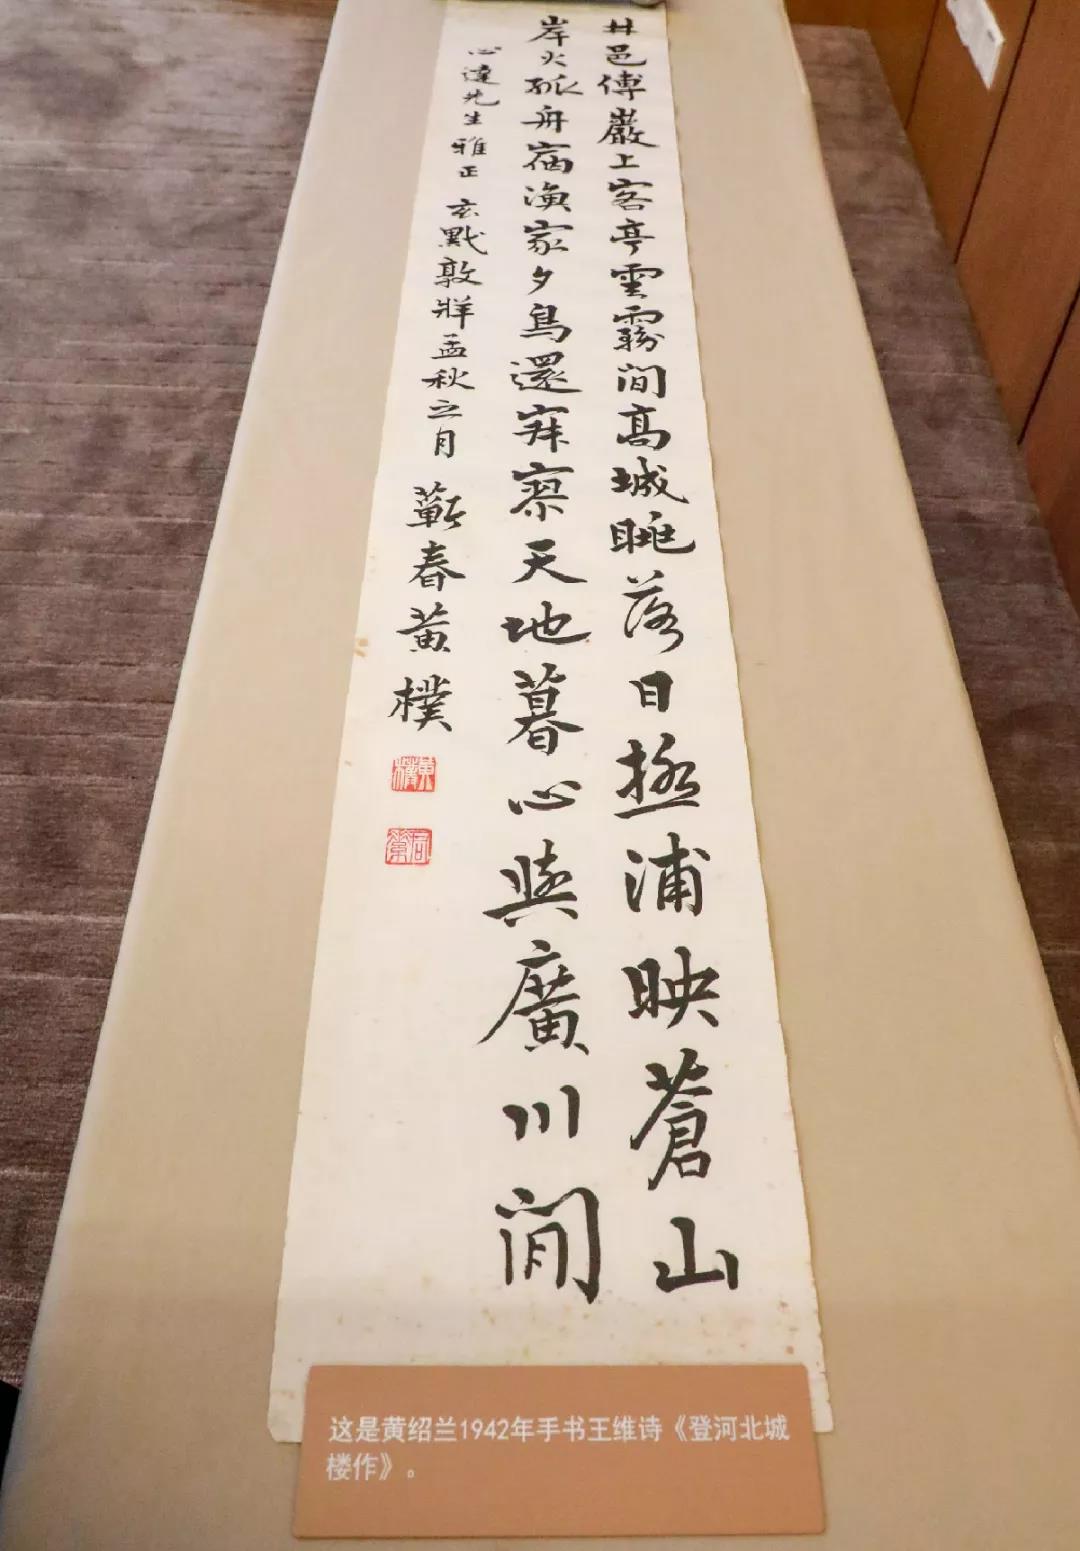 井邑傅巖上客亭雲霧間高城眺落日極浦映蒼山
岸火孤舟宿漁家夕鳥還寂寥天地暮心與廣川閒
心達先生雅正 玄黓敦牂孟秋之月 蘄春黃樸
黃樸
这是黄绍兰1942年手书王维诗《登河北城
楼作》。